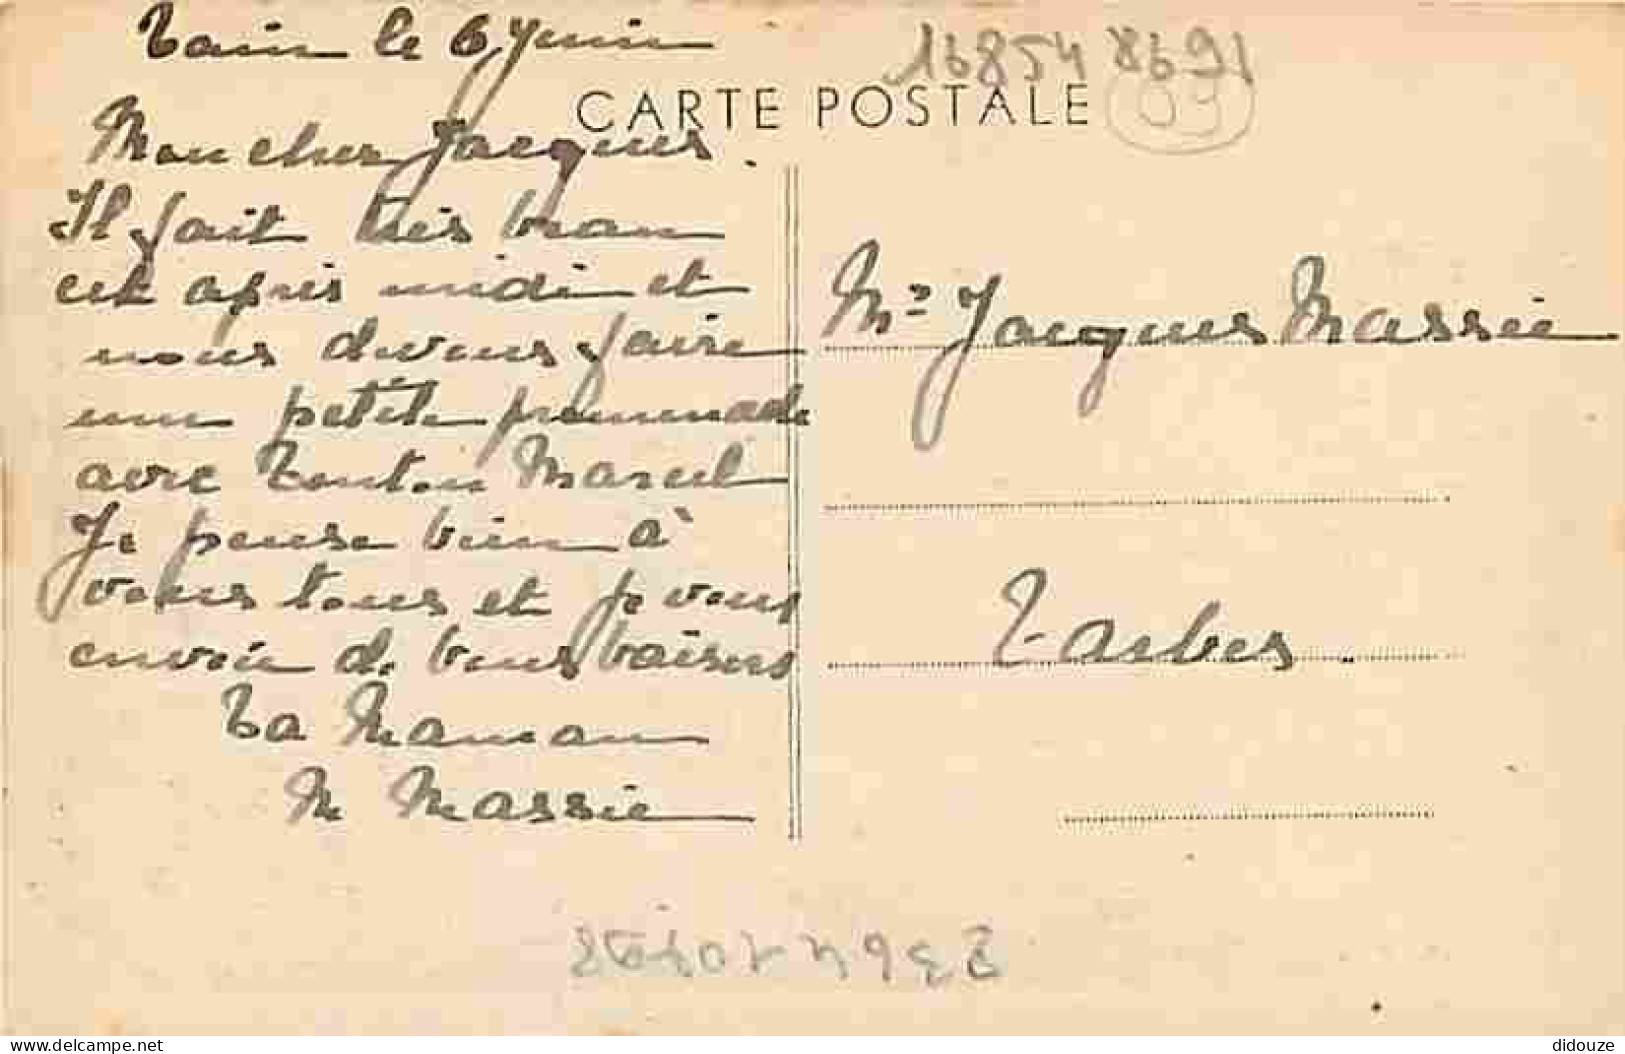 Tain le 6 Juin
16854 8691
CARTE POSTALE
03
Mon cher Jacques.
Il fait très beau
cet après midi et
nous devons faire
une petite promenade
avec Tonton Marcel
Je pense bien à
vous tous et je vous
envoie de bons baisers
Ta Maman
M Massie
Mr Jacques Massie
Tarbes.
delcampe.net
didouze